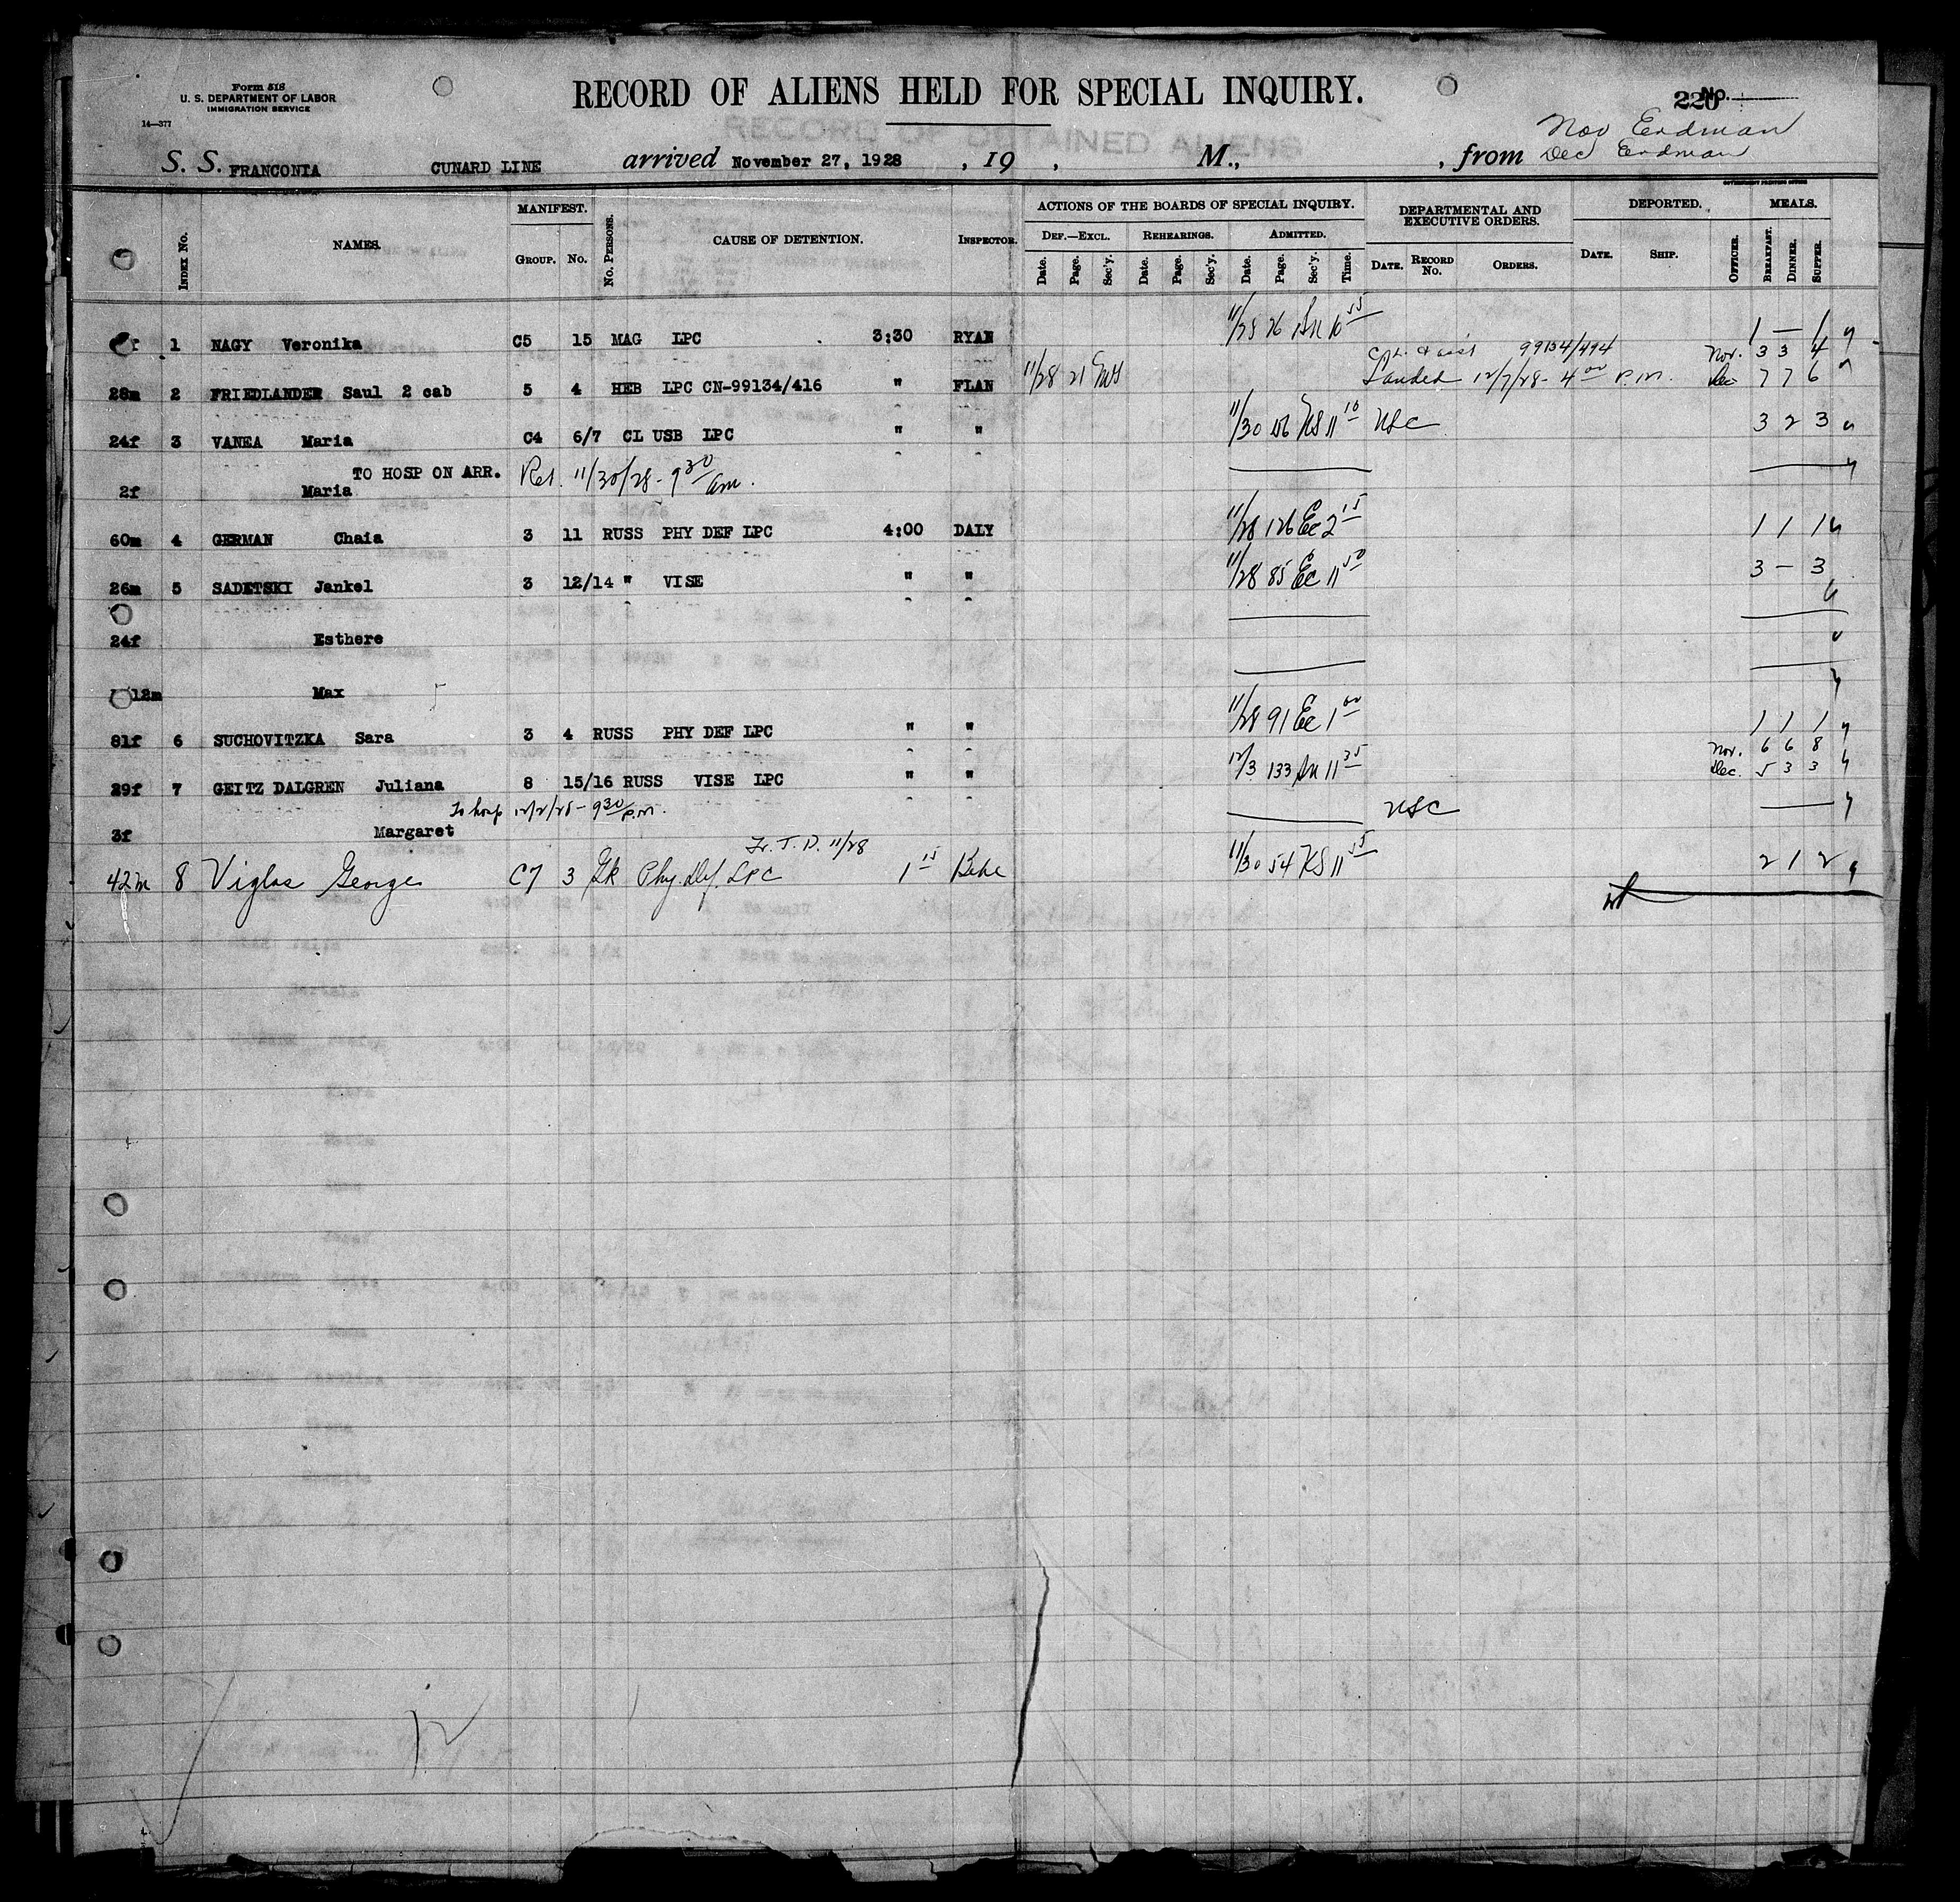 Form 518
U. S. DEPARTMENT OF LABOR
IMMIGRATION SERVICE
14—377
RECORD OF ALIENS HELD FOR SPECIAL INQUIRY.
RECORD OF DETAINED ALIENS
220 No.
Nov Erdman
Dec Erdman
S. S. FRANCONIA CUNARD LINE arrived November 27, 1928 , 19 , M., , from
GOVERNMENT PRINTING OFFICE
INDEX NO. NAMES. MANIFEST. GROUP. NO. NO. PERSONS. CAUSE OF DETENTION. INSPECTOR.
ACTIONS OF THE BOARDS OF SPECIAL INQUIRY. DEF.—EXCL. REHEARINGS. ADMITTED.
Date. Page. Sec'y. Date. Page. Sec'y. Date. Page. Sec'y. Time.
DEPARTMENTAL AND EXECUTIVE ORDERS. DATE. RECORD NO. ORDERS.
DEPORTED. DATE. SHIP. OFFICER. MEALS. BREAKFAST. DINNER. SUPPER.
f 1 NAGY Veronika C5 15 MAG LPC 3:30 RYAN 11/28 26 10 55 1 — 1
99134/494 Nov. 3 3 4
28m 2 FRIEDLANDER Saul 2 cab 5 4 HEB LPC CN-99134/416 " FLAN 11/28 21 Landed 12/7/28 - 4 00 P.M. Dec 7 7 6
24f 3 VANEA Maria C4 6/7 CL USB LPC " " 11/30 KS 11 10 USC 3 2 3
TO HOSP ON ARR. Rel. 11/30/28 - 9 30 am.
2f Maria
60m 4 GERMAN Chaia 3 11 RUSS PHY DEF LPC 4:00 DALY 11/28 126 Ec 2 15 1 1 1
26m 5 SADETSKI Jankel 3 12/14 " VISE " " 11/28 85 Ec 11 50 3 — 3
24f Esthere
12m Max
81f 6 SUCHOVITZKA Sara 3 4 RUSS PHY DEF LPC " " 11/28 91 Ec 1 00 1 1 1
Nov. 6 6 8
29f 7 GEITZ DALGREN Juliana 8 15/16 RUSS VISE LPC " " 12/3 133 11 35 Dec. 5 3 3
To hosp 12/2/28 - 9 30 P.M. USC
3f Margaret
Fr. T. D. 11/28
42m 8 Viglas George C7 3 Gk Phy. Def. LPC 1 15 11/30 54 KS 11 55 2 1 2
12